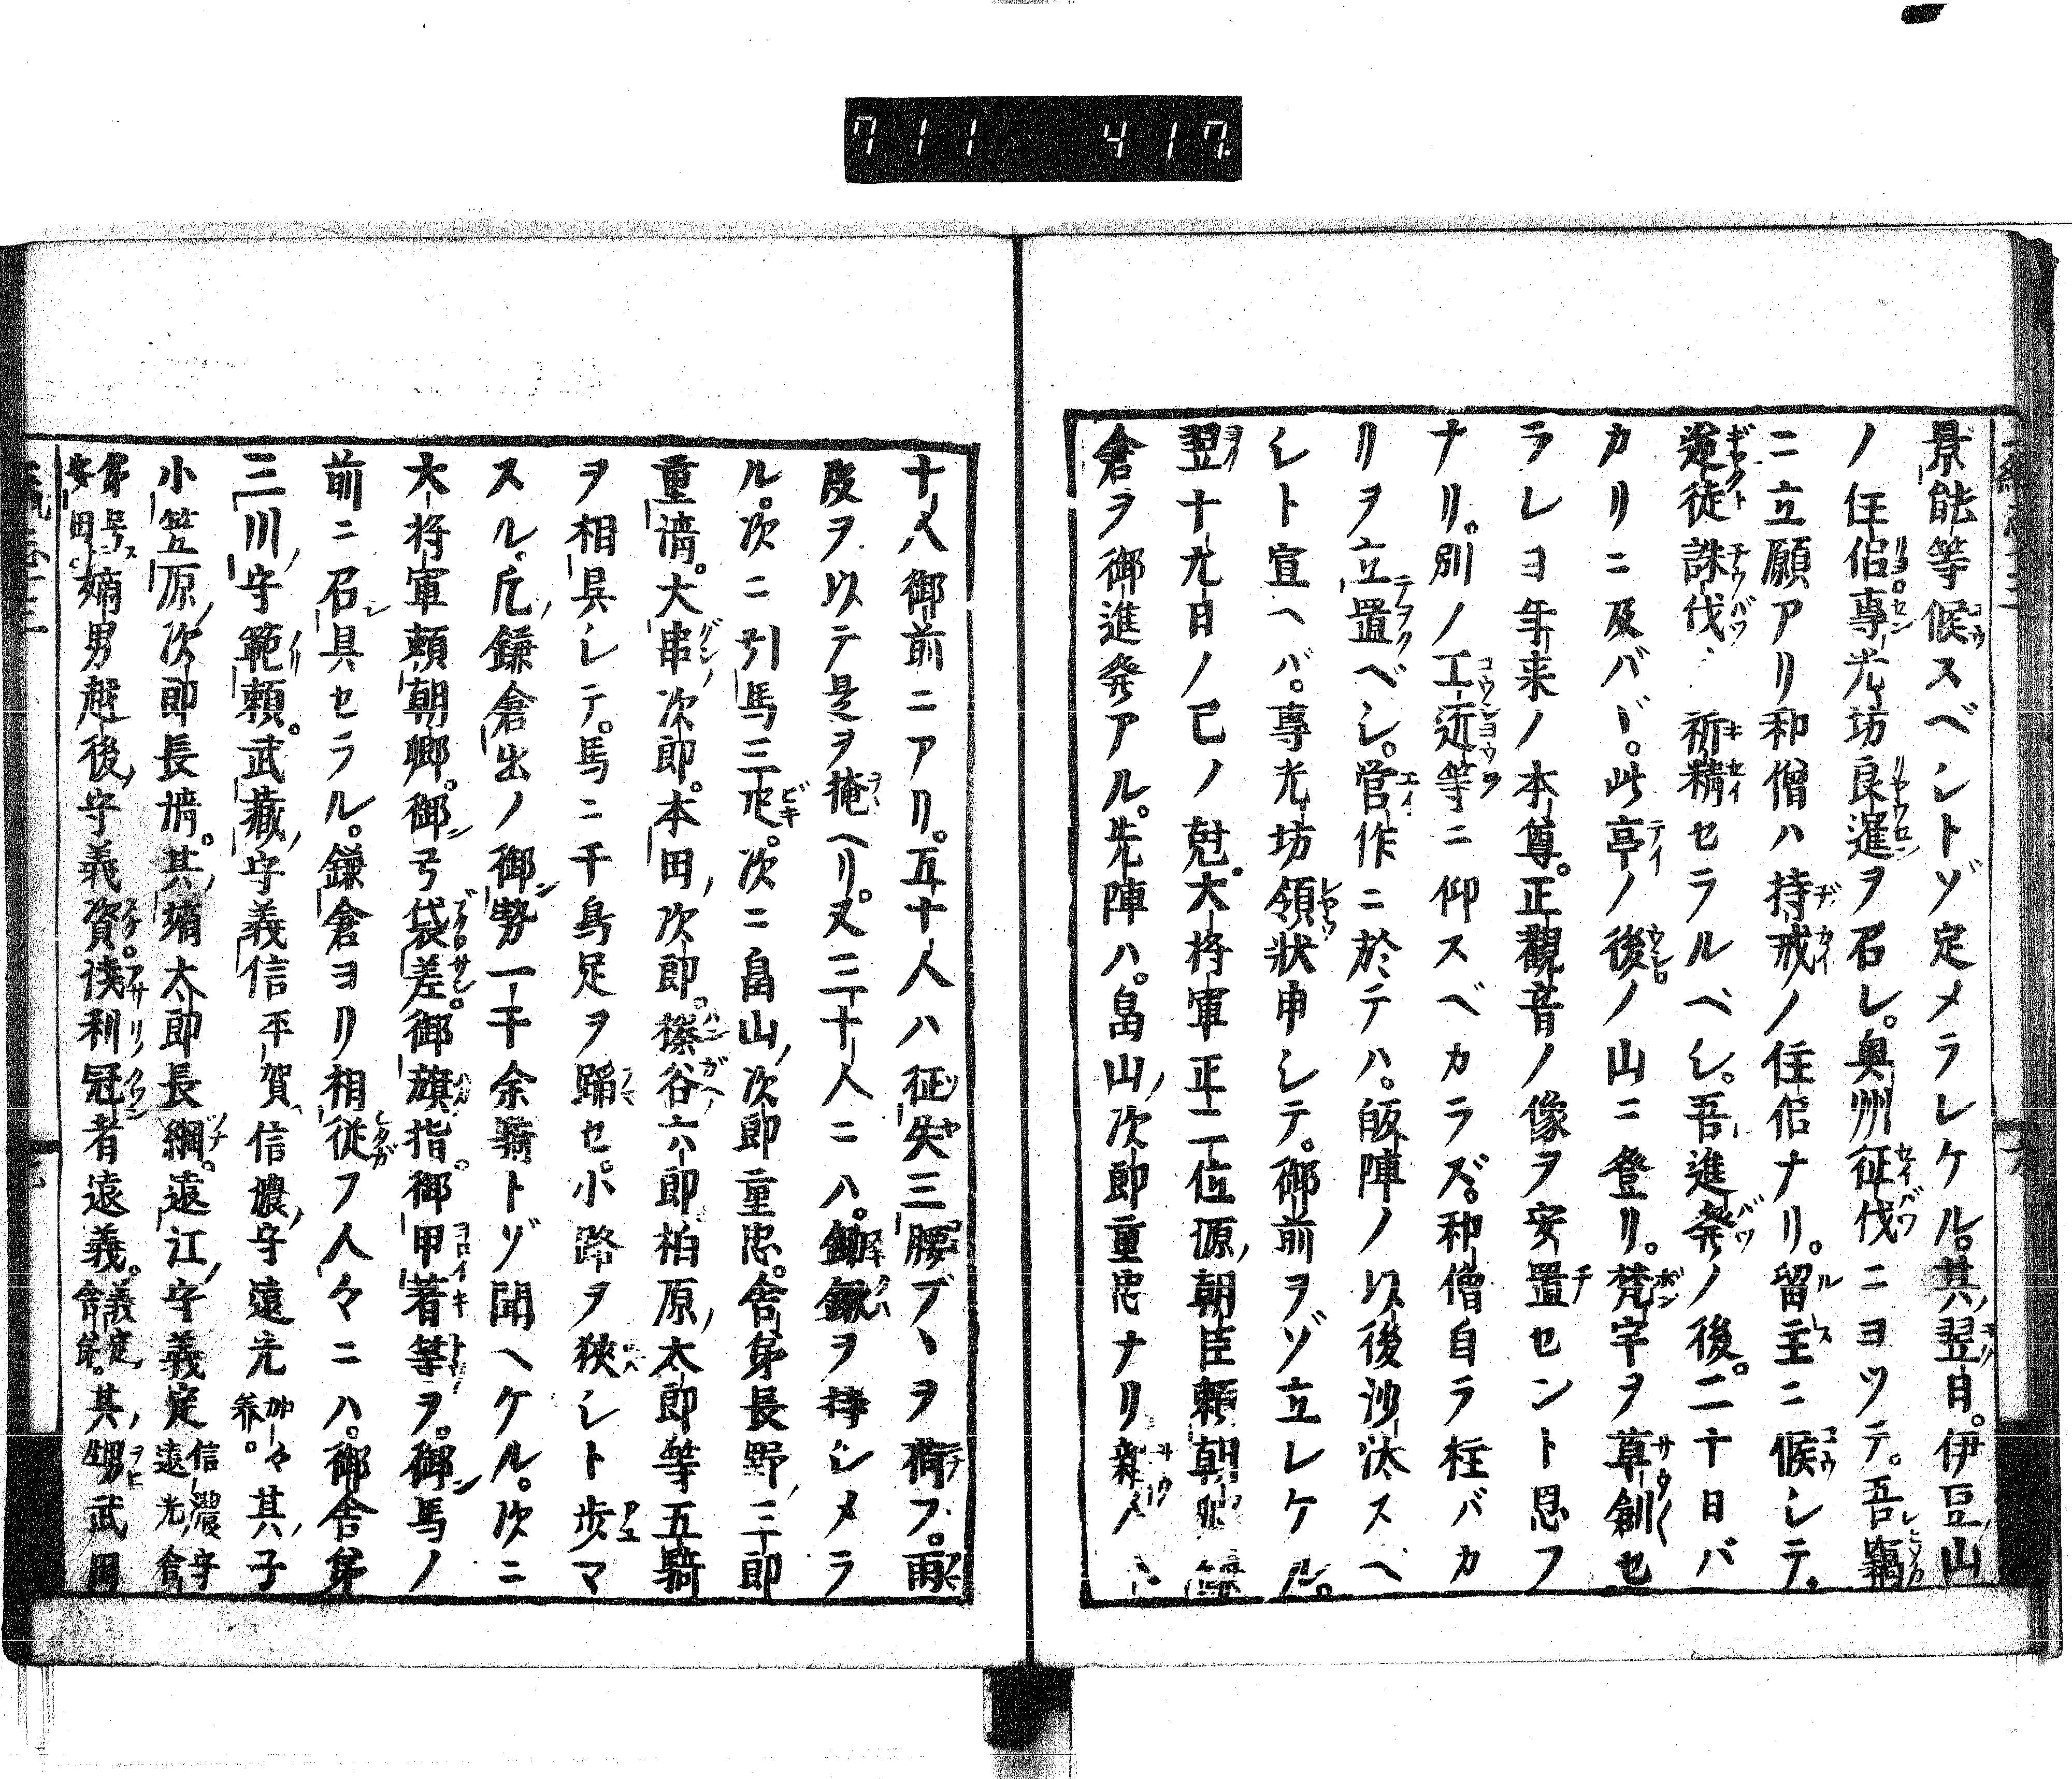 711 417
景能等候スベシトゾ定メラレケル。其翌日。伊豆山
ノ住侶專光坊良暹ヲ召レ。奥州征伐ニヨツテ。吾竊
ニ立願アリ和僧ハ持戒ノ住侶ナリ。留主ニ候シテ。
逆徒誅伐ヽ祈精セラルベシ。吾進発ノ後。二十日バ
カリニ及バヾ。此亭ノ後ノ山ニ登リ。梵宇ヲ草創セ
ラレヨ年来ノ本尊。正觀音ノ像ヲ安置セント思フ
ナリ。別ノ工近等ニ仰スベカラズ。和僧自ラ柱バカ
リヲ立置ベシ。営作ニ於テハ。皈陣ノ以後沙汰スヘ
シト宣ヘバ。專光坊領状申シテ。御前ヲゾ立レケル。
翌十九日ノ巳ノ尅。大将軍正二位源朝臣頼朝卿鎌
倉ヲ御進発アル。先陣ハ。畠山次郎重忠ナリ
十人御前ニアリ。五十人ハ征矢三腰ヅヽヲ荷フ。雨
皮ヲ以テ是ヲ掩ヘリ。又三十人ニハ。鋤鍬ヲ持シメラ
ル。次ニ引馬三疋。次ニ畠山次郎重忠。舎弟長野三郎
重清。大串次郎。本田次郎。榛谷六郎柏原太郎等五騎
ヲ相具シテ。馬ニ千鳥足ヲ踊セ。小路ヲ狹シト歩マ
スル。凡鎌倉出ノ御勢一千余騎トゾ聞ヘケル。次ニ
大将軍頼朝卿。御弓袋差。御旗指。御甲着等ヲ。御馬ノ
前ニ召具セラル。鎌倉ヨリ相従フ人々ニハ。御舎弟
三川守範頼。武藏守義信平賀信濃守遠光加々美。其子
小笠原次郎長清。其嫡太郎長綱。遠江守義定信濃守遠光舎
弟号ス安田。嫡男越後守義資。浅利冠者遠義。義定舎弟。其甥武田